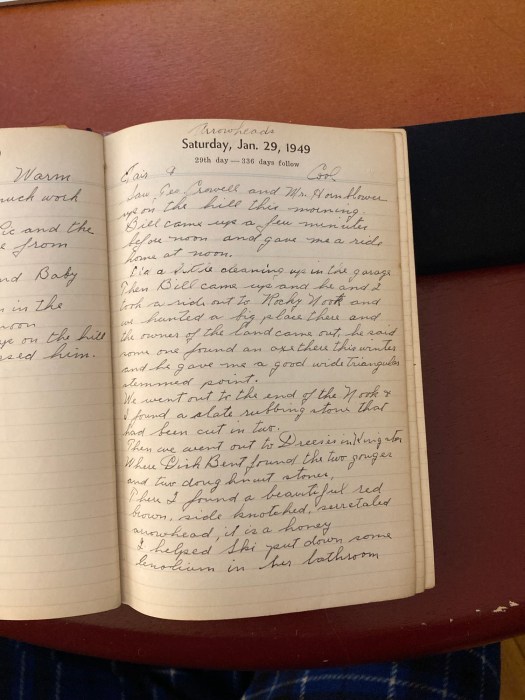 Warm
much work
ic and the
e from
nd Baby
n in the
noon
up on the hill
ssed him.
Arrowheads
Saturday, Jan. 29, 1949
29th day—336 days follow
Fair & Cool
Saw Geo. Crowell and Mr. Hornblower
up on the hill this morning.
Bill came up a few minutes
before noon and gave me a ride
home at noon.
Did a little cleaning up in the garage
Then Bill came up and he and I
took a ride out to Rocky Nook and
we hunted a big place there and
the owner of the land came out, he said
some one found an axe there this winter
and he gave me a good wide triangular
stemmed point.
We went out to the end of the Nook &
I found a slate rubbing stone that
had been cut in two.
Then we went out to in Kingston
Where Dick Bent found the two gouges
and two doughnut stones.
There I found a beautiful red
brown, side knotched, serrated
arrowhead, it is a honey
I helped Ski put down some
linolium in her bathroom